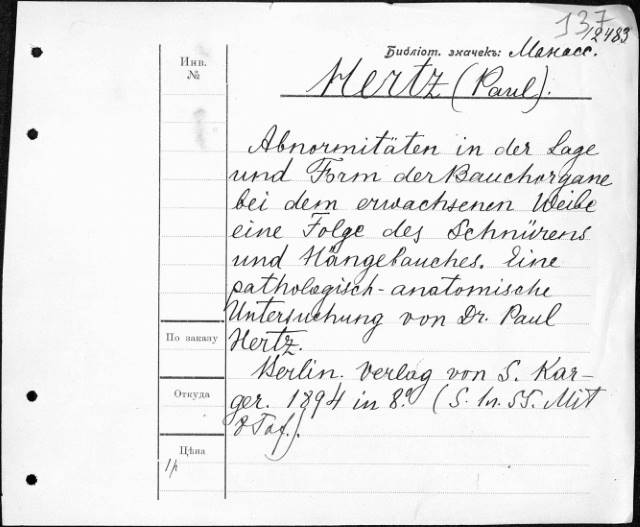 137
12483
Библіот. значекъ: Манасс.
Инв.
№
Hertz (Paul).
Abnormitäten in der Lage
und Form der Bauchorgane
bei dem erwachsenen Weibe
eine Folge des Schnürens
und Hängebauches. Eine
pathologisch-anatomische
Untersuchung von Dr. Paul
Hertz.
По заказу
Berlin. Verlag von S. Kar-
ger. 1894 in 8° (S. 55. Mit
8 Taf.).
Откуда
Цѣна
1р